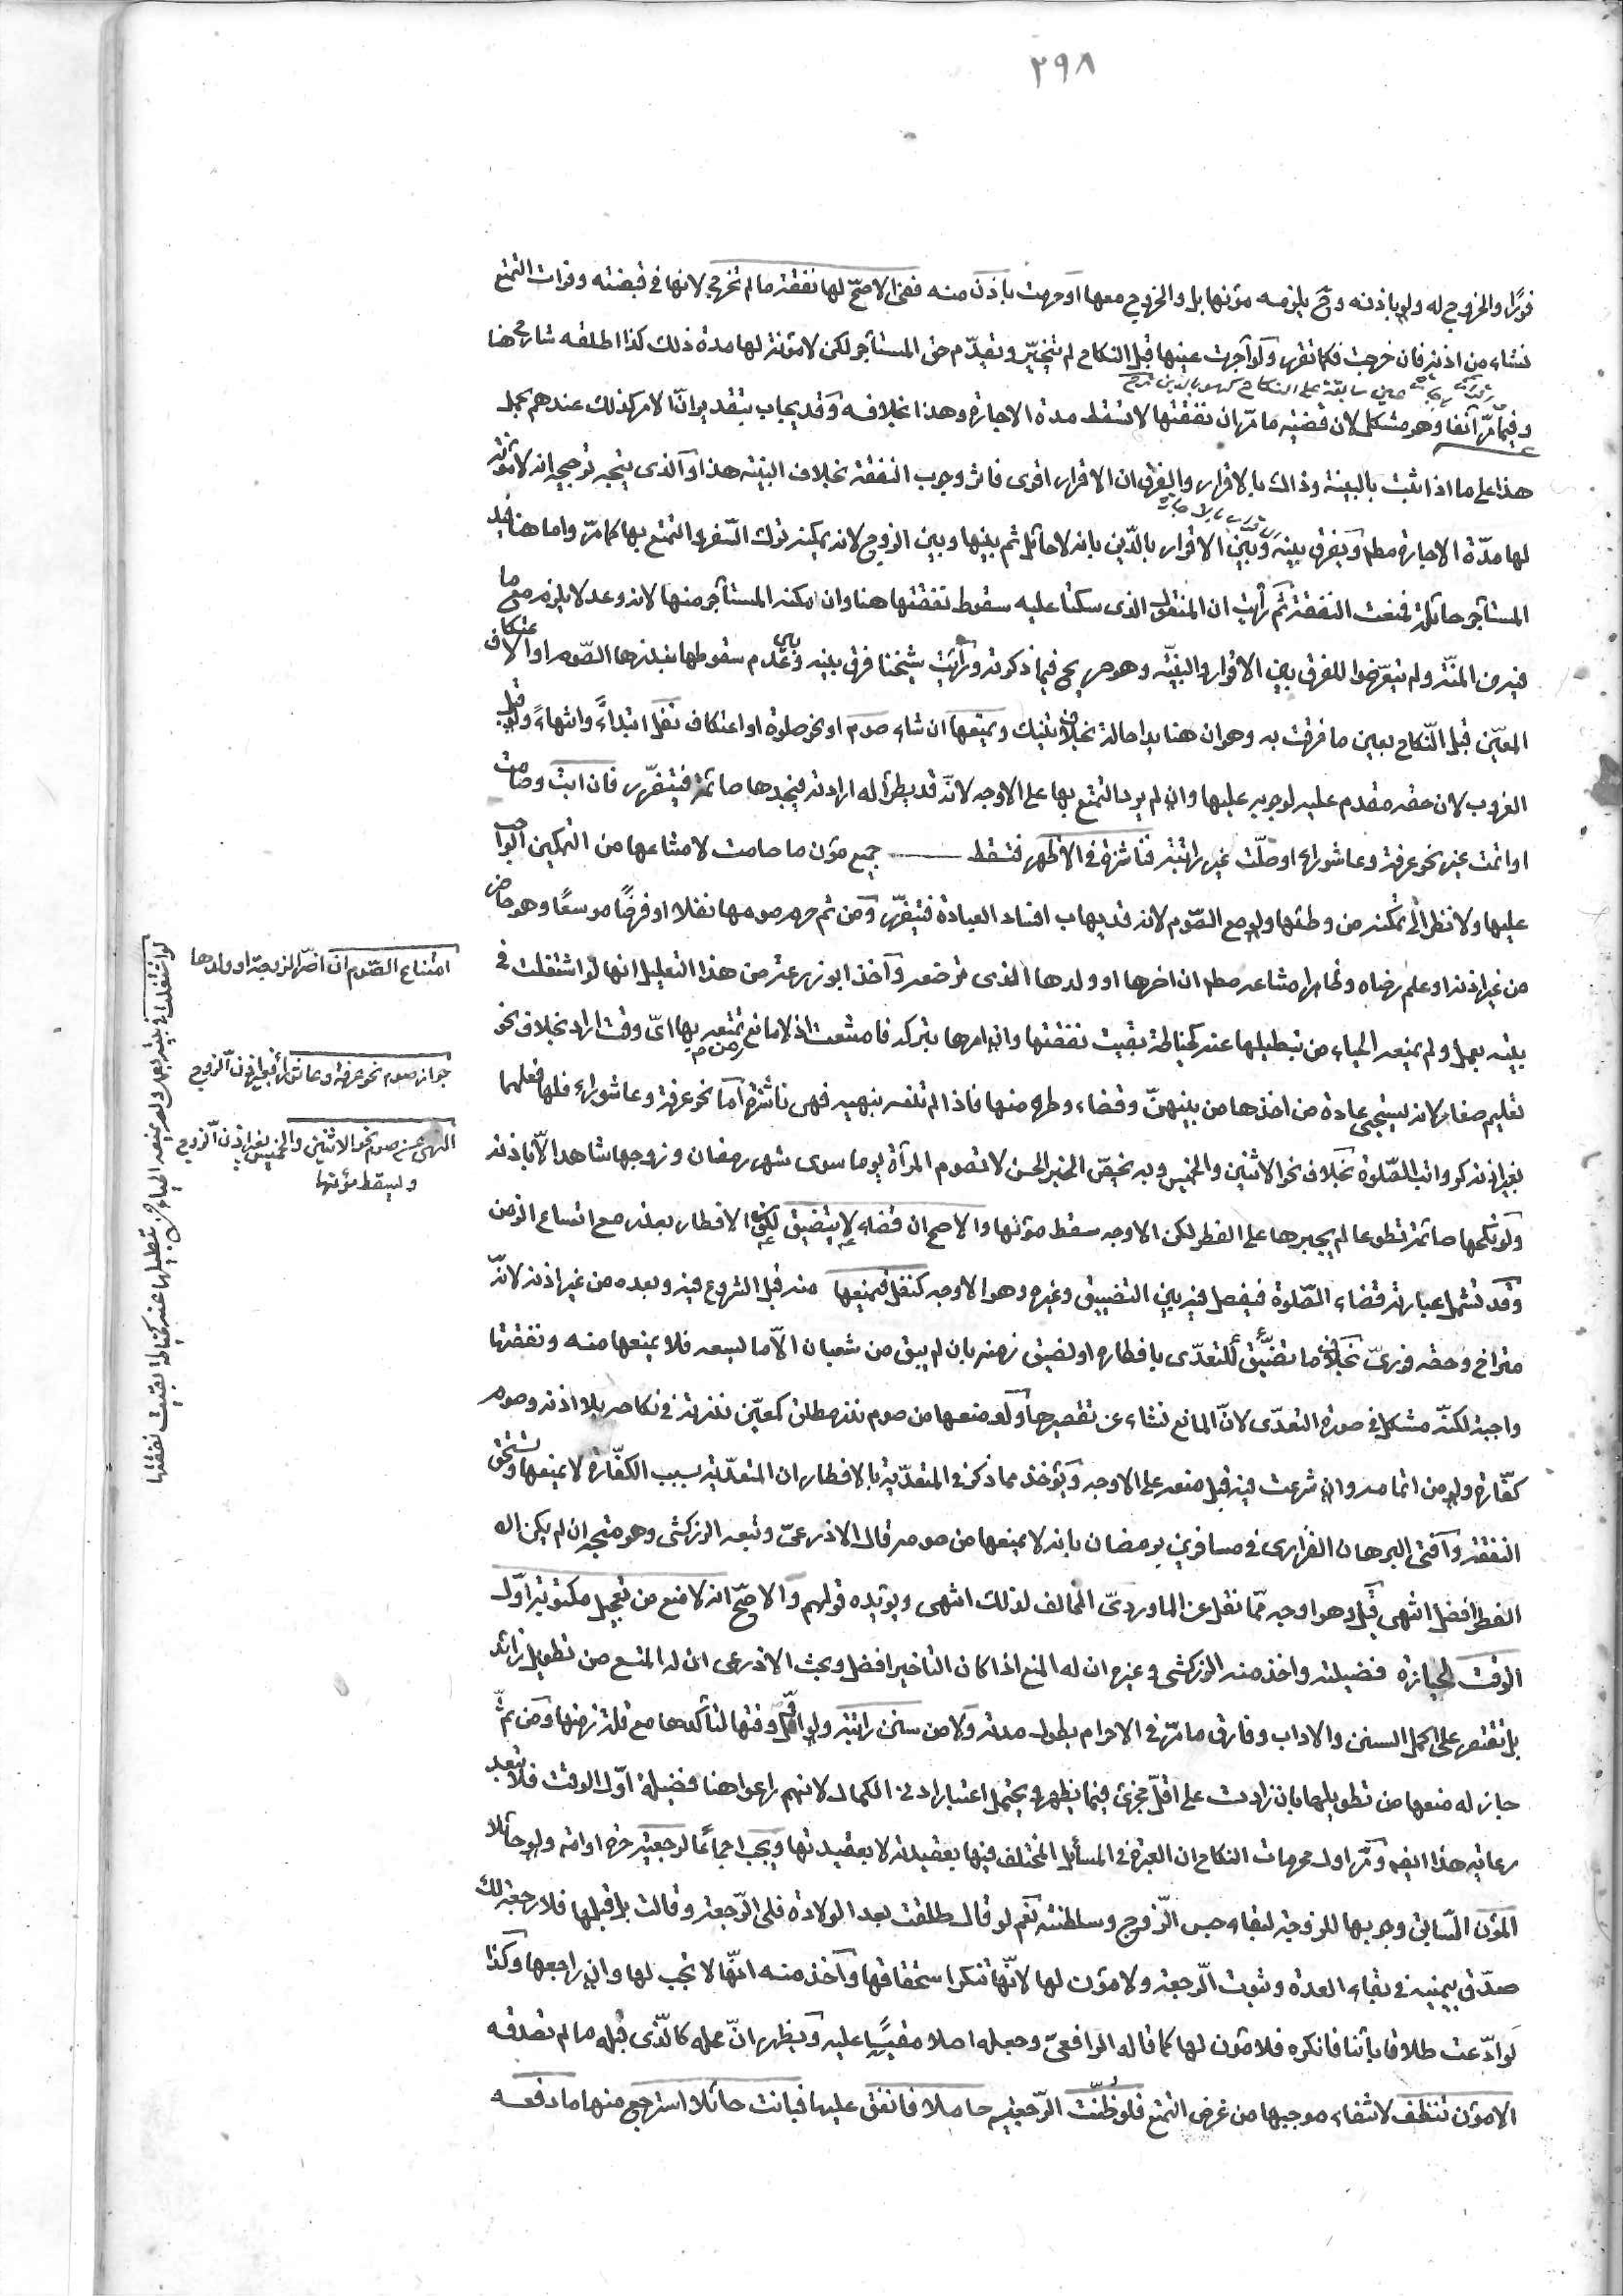 ٢٩٨
فورًا والخروج له ولو باذنه وح يلزمه مؤنها بل والخروج معها او حرمت باذن منه ففي الاصح لها نفقة ما لم تخرج لانها في قبضته وفوات التمتع
نشاء من اذنه فان خرجت فكما تقرر ولو آجرت عينها قبل النكاح لم يتخيّر ويقدّم حق المستأجر لكن لا مؤنة لها مدة ذلك كذا اطلقه شارح هنا
وفيما مرّ آنفا وهو مشكل لان قضية ما مرّ ان نفقتها لا تسقط مدة الاجارة وهذا بخلافه وقد يجاب بتقدير انّ الامر كذلك عندهم بحمل
هذا على ما اذا ثبت بالبينة وذاك بالاقرار والفرق ان الاقرار اقوى فاثر وجوب النفقة بخلاف البينة هذا والذى يتجه ترجيحه انه لا مؤنة
لها مدّة الاجارة مطلقا ويفرق بينه وبين الاقرار بالدّين بانه لا حائل ثم بينها وبين الزوج لانه يمكنه ترك السّفر والتمتع بها كما مرّ واما هنا فيد
المستأجر حائلة فمنعت النفقة ثم رأيت ان المنقول الذى سكتا عليه سقوط نفقتها هنا وان مكنه المستأجر منها لانه وعد لا يلزم مع ما
فيه من المنّة ولم يتعرّضوا للفرق بين الاقرار والبينة وهو صريح فيما ذكرته ورأيت شيخنا فرق بينه وبين عدم سقوطها بنذرها الصّوم او الاعتكاف
المعيّن قبل النّكاح بعين ما فرقت به وهو ان هنا يدا حائلة بخلاف تينك ويمنعها ان شاء صوم او نحو صلوة او اعتكاف نفل ابتداءً وانتهاءً ولو قبل
الغروب لان حقه مقدم عليه لوجوبه عليها وان لم يرد التمتع بها على الاوجه لانّه قد يطرأ له ارادته فيجدها صائمة فيتضرر فان ابت وصامت
او اتمت غير نحو عرفة وعاشوراء او صلّت غير راتبة فناشزة في الاظهر فتسقط جميع مؤن ما صامت لامتناعها من التمكين الواجب
عليها ولا نظر الى تمكّنه من وطئها ولو مع الصّوم لانه قد يهاب افساد العبادة فيتضرّر ومن ثم حرم صومها نفلا او فرضًا موسعًا وهو حاضر
من غير اذنه او علم رضاه وظاهر امتناعه مطلقا ان اضرها او ولدها الذى ترضعه وآخذ ابو زرعة من هذا التعليل انها لو اشتغلت في
بيته بعمل ولم يمنعه الحياء من تبطيلها عنه كخياطة بقيت نفقتها وان امرها بتركه فامتنعت اذ لا مانع من تمتعه بها اىّ وقت اراد بخلاف نحو
تعليم صغار لانه يستحيى عادة من اخذها من بينهنّ وقضاء وطره منها فاذا لم تنته بنهيه فهى ناشزة اما نحو عرفة وعاشوراء فلها فعلهما
بغير اذنه كرواتب الصّلوة بخلاف نحو الاثنين والخميس وبه يخصّ الخبر الحسن لا تصوم المرأة يوما سوى شهر رمضان وزوجها شاهد الاّ باذنه
ولو نكحها صائمة تطوعا لم يجبرها على الفطر لكن الاوجه سقوط مؤنها والاصح ان قضاء لا يتضيق لكون الافطار بعذر مع اتساع الزمن
وقد تشمل عبارته قضاء الصّلوة فيفصل فيه بين التضييق وغيره وهو الاوجه كنفل فيمنعها منه قبل الشروع فيه وبعده من غير اذنه لانّه
متراخ وحقه فورىّ بخلاف ما تضيّق للتعدّى بافطاره او لضيق زمنه بان لم يبق من شعبان الاّ ما يسعه فلا يمنعها منه ونفقتها
واجبة لكنّه مشكل في صورة التعدّى لانّ المانع نشاء عن تقصيرها ولو منعها من صوم نذر مطلق كمعيّن نذرته في نكاحه بلا اذنه وصوم
كفّارة ولو من اتمامه وان شرعت فيه قبل منعه على الاوجه ويؤخذ مما ذكر في المتعدّية بالافطار ان المتعدّية بسبب الكفّارة لا يمنعها وتستحق
النفقة وآفتى البرهان الفزارى في مسافرين برمضان بانه لا يمنعها من صومه قال الاذرعىّ وتبعه الزركشى وهو متجه ان لم يكن اله
الفطر افضل انتهى قيل وهو اوجه ممّا نقل عن الماوردىّ المخالف لذلك انتهى ويؤيده قولهم والاصحّ انه لا منع من تعجيل مكتوبة اوّل
الوقت لحيازة فضيلته واخذ منه الزركشى وغيره ان له المنع اذا كان التاخير افضل وبحث الاذرعى ان له المنع من تطويل زائد
بل تقتصر على اكمل السنن والاداب وفارق ما مرّ في الاحرام بطول مدته ولا من سنن راتبة ولو اوّل وقتها لتأكدها مع قلة زمنها ومن ثمّ
جاز له منعها من تطويلها بان زادت على اقلّ مجزئ فيما يظهر ويحتمل اعتبار ادنى الكمال لانهم راعوا هنا فضيلة اوّل الوقت فلا تبعد
رعاية هذا ايضا ومرّ اول محرمات النكاح ان العبرة في المسائل المختلف فيها بعقيدته لا بعقيدتها ويجب اجماعًا لرجعية حرة او امة ولو حائلا
المؤن السّابق وجوبها للزوجة لبقاء حبس الزّوج وسلطنته نعم لو قال طلقت بعد الولادة فلى الرّجعة وقالت بل قبلها فلا رجعة لك
صدّق بيمينه في بقاء العدة وثبوت الرّجعة ولا مؤن لها لانّها تنكر استحقاقها وآخذ منه انّها لا تجب لها وان راجعها وكذا
لو ادّعت طلاقا بائنا فانكره فلا مؤن لها كما قاله الرافعىّ وجعله اصلا مقيسا عليه ويظهر انّ محله كالذّى قبله ما لم تصدقه
الا مؤن تنظف لانتفاء موجبها من غرض التمتع فلو ظُنّت الرّجعية حاملا فانفق عليها فبانت حائلا استرجع منها ما دفعه
امتناع الصّوم ان اضرّ الزوجة او ولدها
جواز صوم نحو عرفة وعاشوراء بغير اذن الزوج
النهى عن صوم نحو الاثنين والخميس بغير اذن الزوج
ويسقط مؤنتها
لو اشتغلت في بيته بعمل ولم يمنعه الحياء من تبطيلها عنه كخياطة بقيت نفقتها